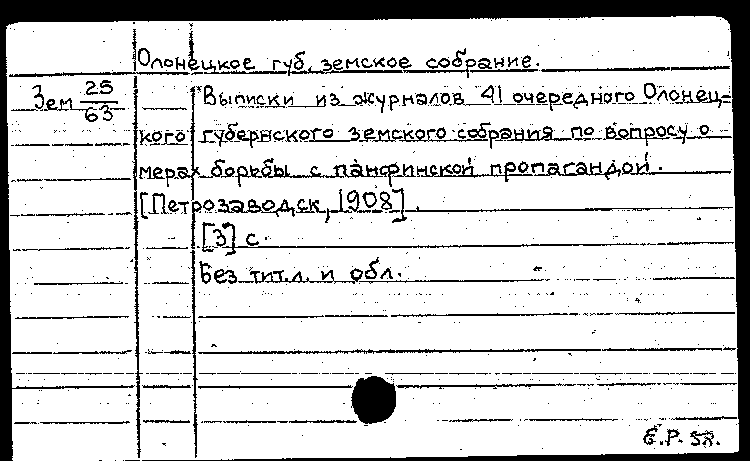 Олонецкое губ. земское собрание.
Зем 25/63
Выписки из журналов 41 очередного Олонец-
кого губернского земского собрания по вопросу о
мерах борьбы с панфинской пропагандой.
[Петрозаводск, 1908].
[3] с.
Без тит.л. и обл.